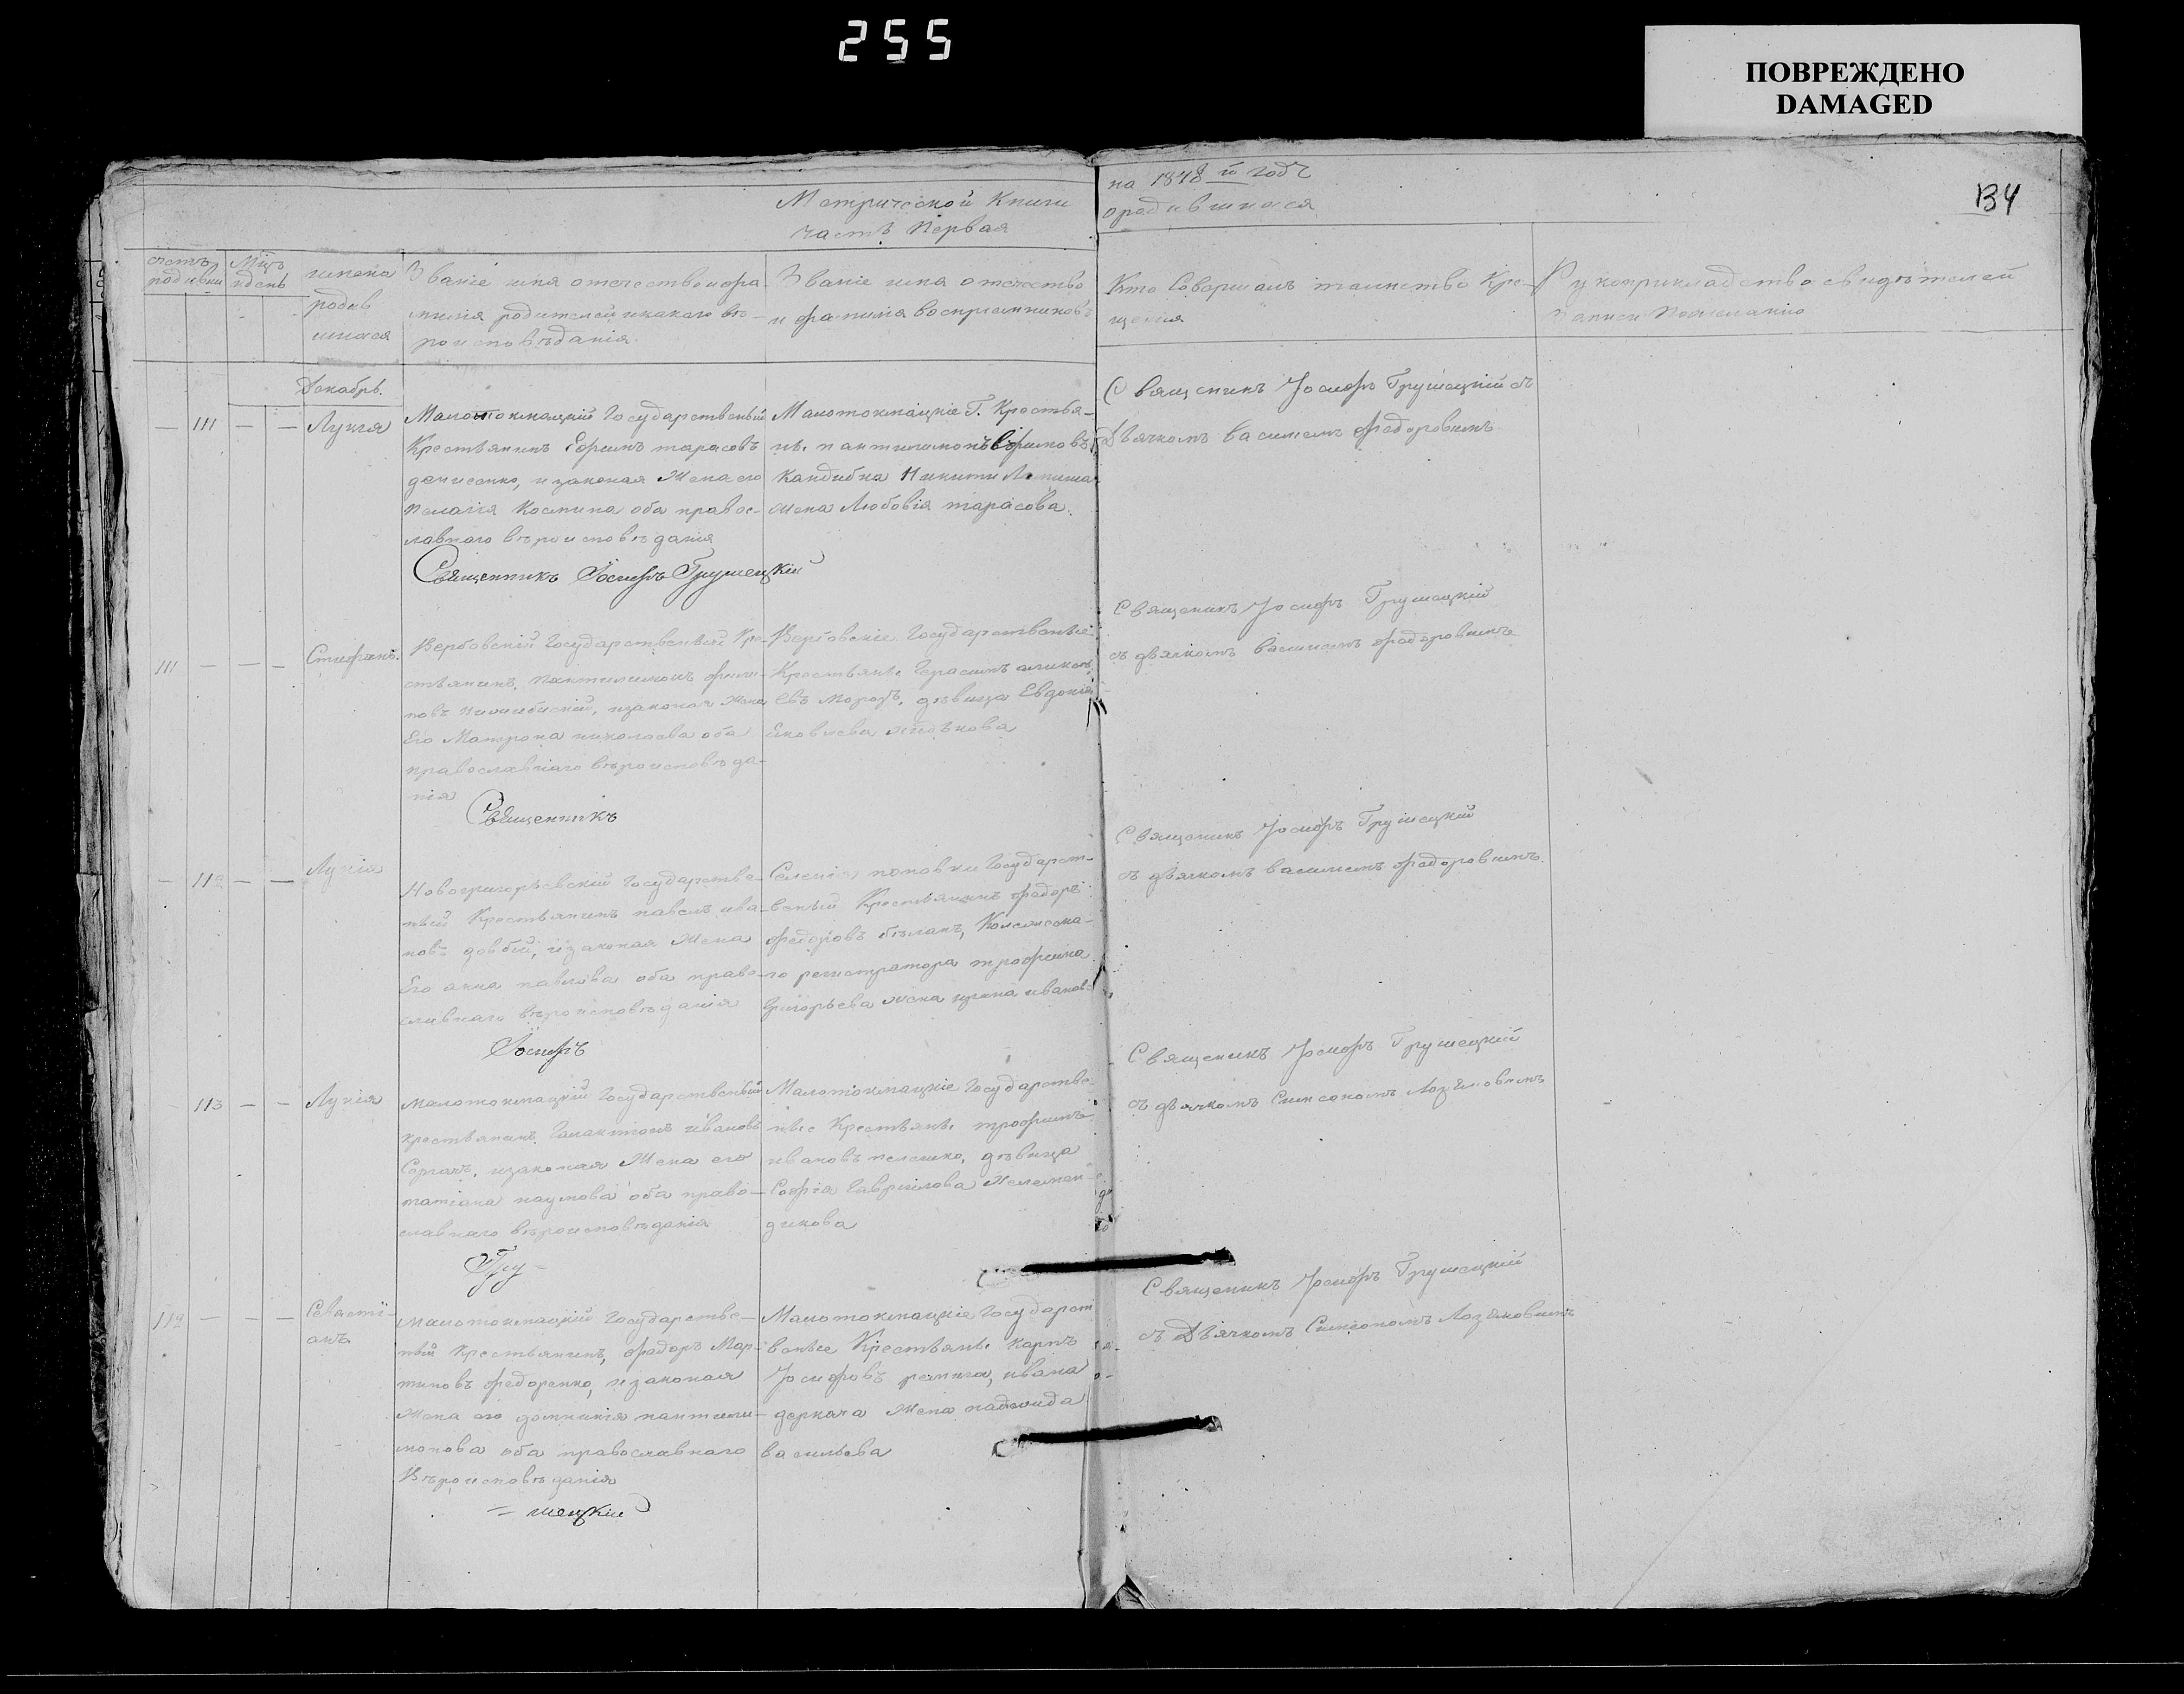 255
ПОВРЕЖДЕНО
DAMAGED
134
Метрической Книги
часть Первая
на 1848 й годъ
о родившихся
счетъ родивши
Мцъ и день
имена родив шихся
Званіе имя отечество и фа
милія родителей и какаго вѣ-
роисповѣданія.
Званіе имя отечество
и фамилія воспріемниковъ
Кто Совершалъ таинство Кре-
щенія
Рукоприкладство свидѣтелей
Записи по желанію
Декабрь.
— 111 — — Лукия
Малотокмацкій Государственый
Крестьянинъ Ефимъ тарасовъ
денисенко, и законая Жена его
пелагія Космина оба правос-
лавнаго вѣроисповѣданія
Священникъ Іосифъ Грушецкій
Малотокмацкіе Г. Крестья-
не. пантилимонъ Ефимовъ
Кандибка Никити
жена Любовія тарасова.
Священикъ Іосифъ Грушецкій съ
Дьячкомъ василіемъ федоровимъ
111 — — — Стефанъ.
Вербовскій Государственый Кре-
стьянинъ, пантилимонъ фили-
повъ, изаконая Жена
Его Матрона николаева оба
православнаго вѣроисповѣда-
нія
Священникъ
Вербовские Государственые
Крестьяне Герасимъ аликсѣ
евъ Морозъ, дѣвица Евдокія
Яковлева
Священикъ Іосифъ Грушецкій
съ дьячкомъ василіемъ федоровимъ
— 112 — — Лукія
Новогригорьевскій Государстве-
ный Крестьянинъ павелъ ива-
новъ довбій, изаконая Жена
Его анна павлова оба право-
славнаго вѣроисповѣданія
Іосифъ
Селенія поповки Государст-
веный Крестьянинъ федоръ
федоровъ бѣланъ, Колежска-
го регистратора трофима
Григорьева жена ирина иванов
Священикъ Іосифъ Грушецкій
съ дьячкомъ василіемъ федоровимъ.
— 113 — — Лукія
Малотокмацкій Государственый
крестьянинъ, Галактіонъ ивановъ
Саргачъ, изаконая Жена его
татіана наумова оба право-
славнаго вѣроисповѣданія
Гру-
Малотокмацкіе Государстве-
ные Крестьяне трофимъ
ивановъ, дѣвица
Софія Гавриілова Желеман-
дикова
Священикъ Іосифъ Грушецкій
съ дьячкомъ Симеономъ
112 — — — Севасті-
анъ
Малотокмацкій Государстве-
ный Крестьянинъ, федоръ Мар-
тиновъ федоренко, изаконая
Жена его домникія пантили-
монова оба православнаго
Вѣроисповѣданія
- шецкій
Малотокмацкіе Государст
веные Крестьяне Карпъ
Іосифовъ, ивана
деркача Жена
васильева
Священикъ Іосифъ Грушецкій
съ Дьячкомъ Симеономъ